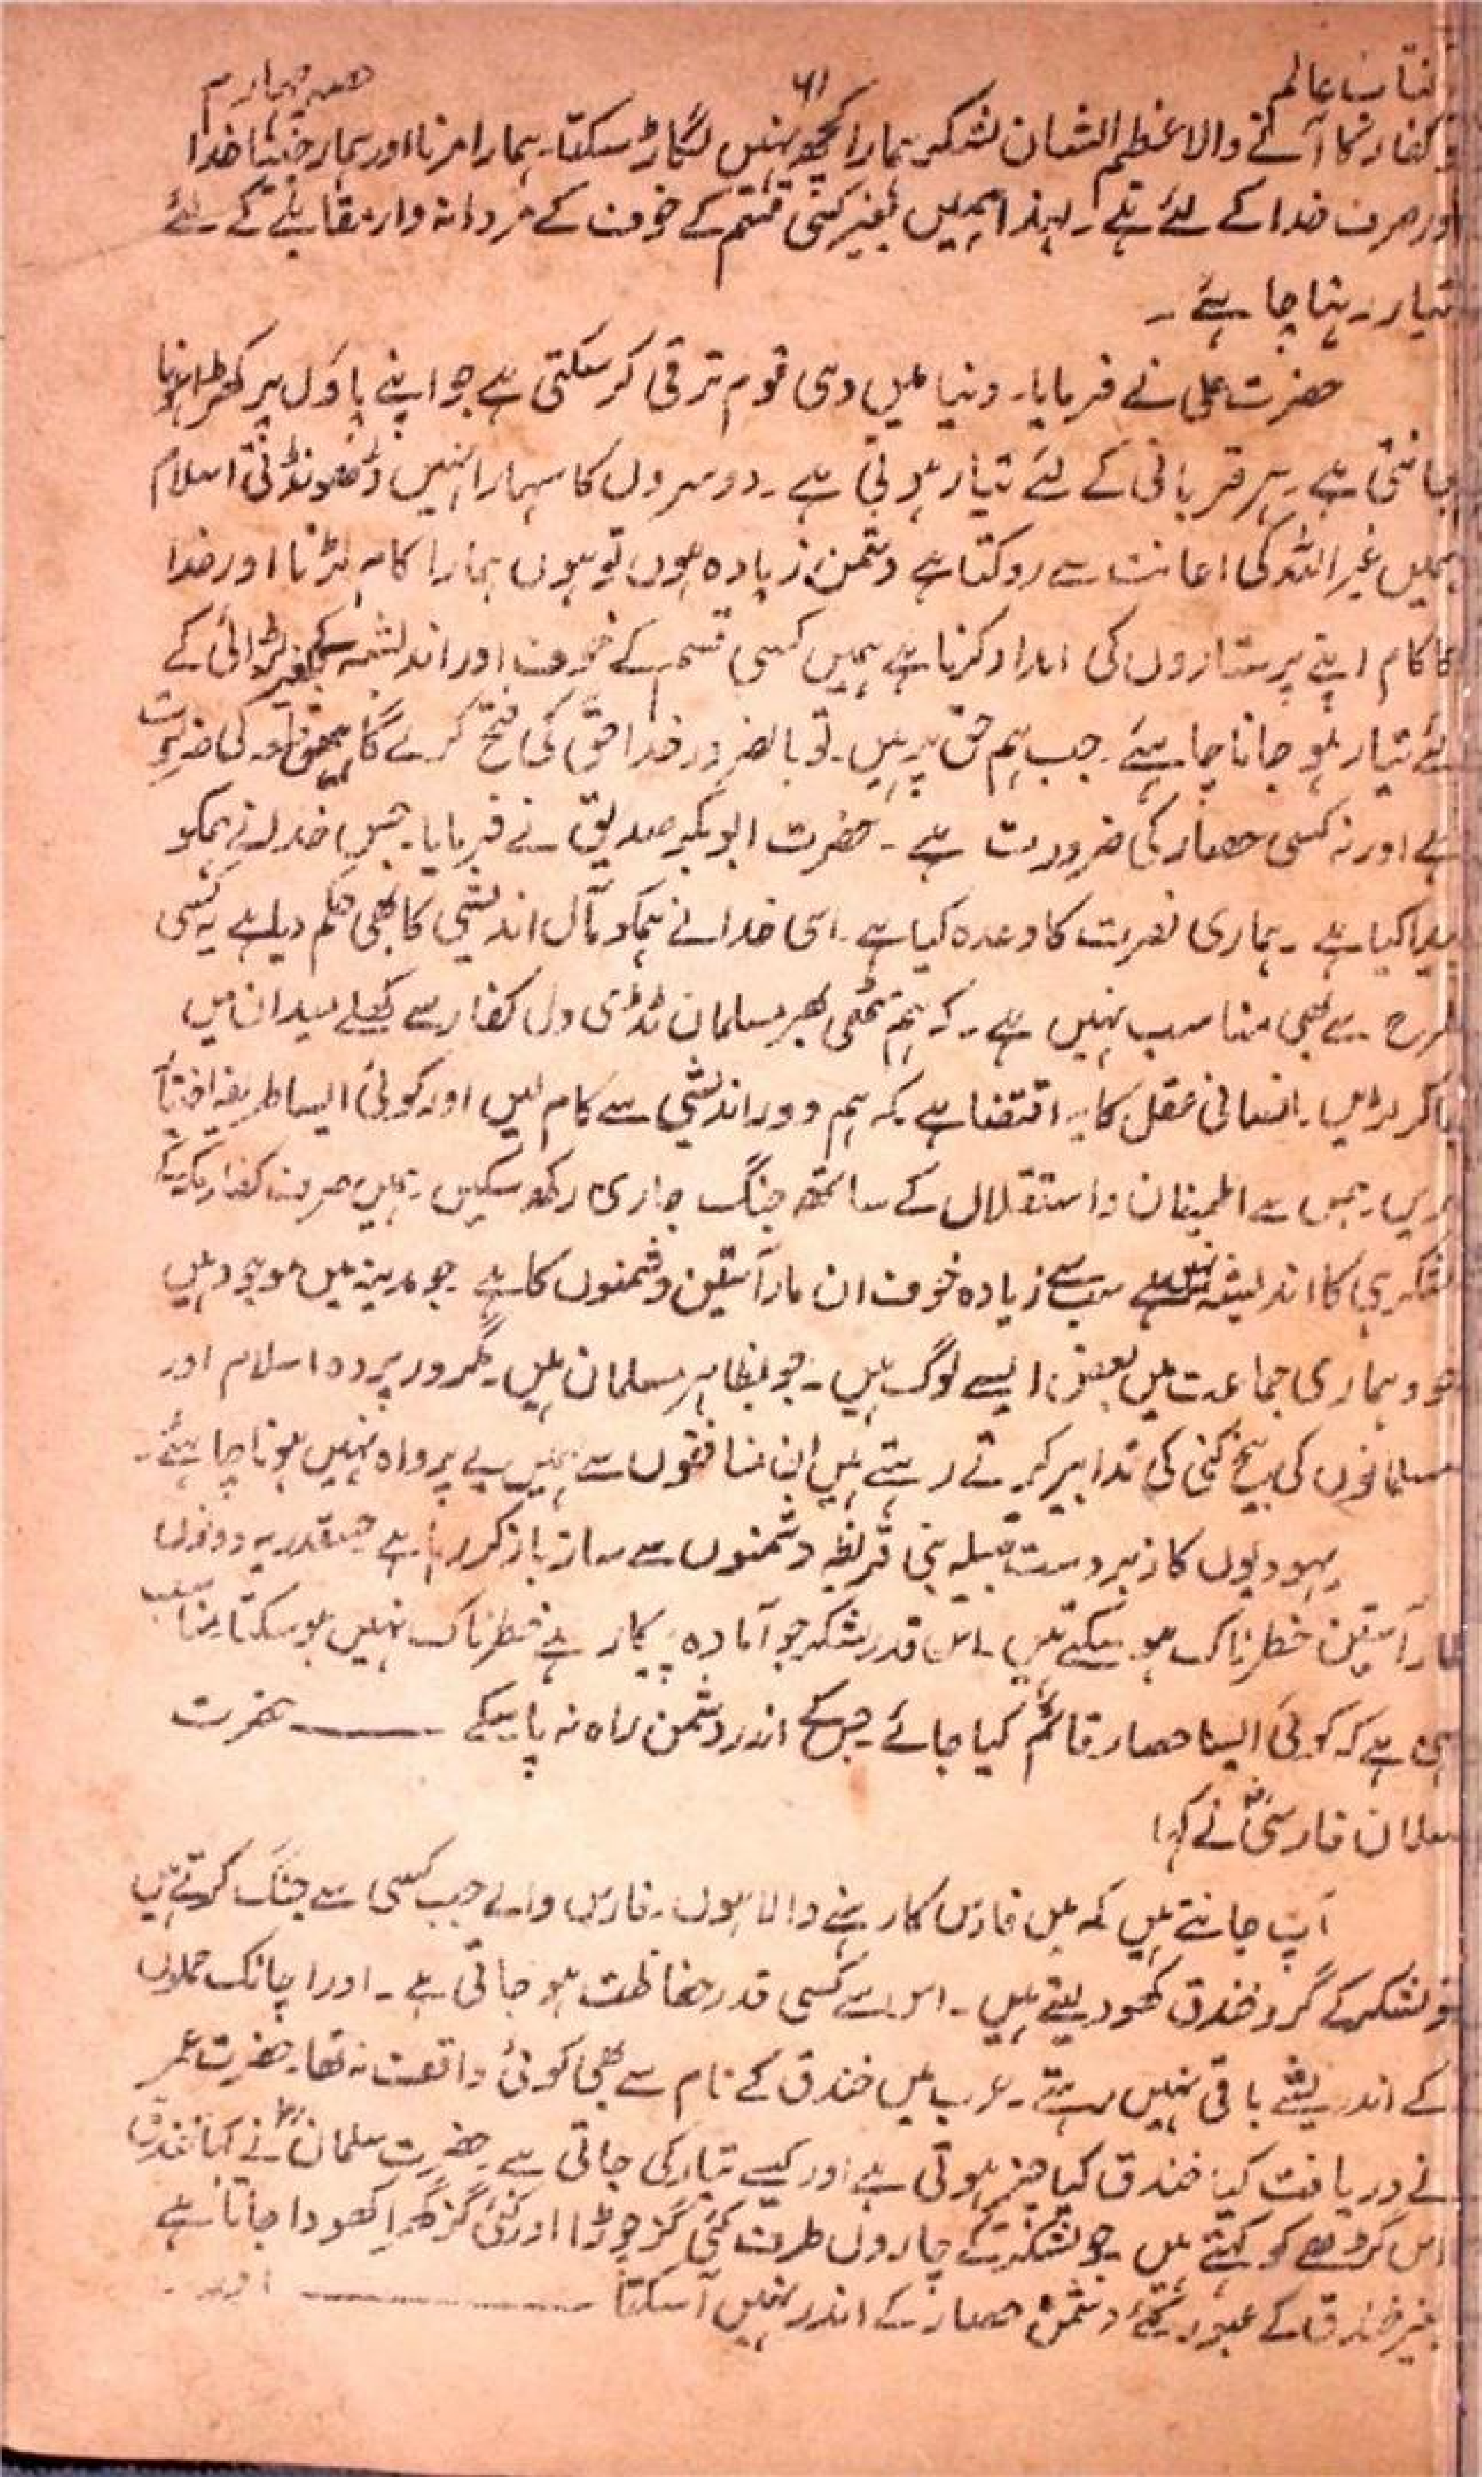 آفتاب عالم ۶۱ حصہ چہارم
تو کفار کا آنے والا عظیم الشان لشکر ہمارا کچھ نہیں بگاڑ سکتا۔ ہمارا مرنا اور ہمارا جینا خدا
اور صرف خدا کے لئے ہے۔ لہذا ہمیں بغیر کسی قسم کے خوف کے مردانہ وار مقابلے کے لئے
تیار رہنا چاہئے۔
حضرت علی نے فرمایا۔ دنیا میں وہی قوم ترقی کر سکتی ہے جو اپنے پاؤں پر کھڑا ہونا
جانتی ہے۔ ہر قربانی کے لئے تیار ہوتی ہے۔ دوسروں کا سہارا نہیں ڈھونڈتی اسلام
ہمیں غیر اللہ کی اعانت سے روکتا ہے دشمن زیادہ ہوں تو ہوں ہمارا کام لڑنا اور خدا
کا کام اپنے پرستاروں کی امداد کرنا ہے ہمیں کسی قسم کے خوف اور اندیشہ کے بغیر لڑائی کے
لئے تیار ہو جانا چاہئے۔ جب ہم حق پر ہیں۔ تو بالضرور خدا حق کی فتح کرے گا ہمیں نہ قلعہ کی ضرورت
ہے اور نہ کسی حصار کی ضرورت ہے۔ حضرت ابوبکر صدیق نے فرمایا۔ جس خدا نے ہمکو
پیدا کیا ہے۔ ہماری نصرت کا وعدہ کیا ہے۔ اسی خدا نے ہمکو مآل اندیشی کا بھی حکم دیا ہے یہ کسی
طرح سے بھی مناسب نہیں ہے۔ کہ ہم مٹھی بھر مسلمان ٹڈی دل کفار سے کھلے میدان میں
جا کر لڑیں۔ انسانی عقل کا یہ اقتضا ہے کہ ہم دور اندیشی سے کام لیں اور کوئی ایسا طریقہ اختیار
کریں۔ جس سے اطمینان و استقلال کے ساتھ جنگ جاری رکھ سکیں۔ ہمیں صرف کفار مکہ کے
لشکر ہی کا اندیشہ نہیں ہے سب سے زیادہ خوف ان مار آستین دشمنوں کا ہے جو مدینہ میں موجود ہیں
خود ہماری جماعت میں بعض ایسے لوگ ہیں۔ جو بظاہر مسلمان ہیں۔ مگر در پردہ اسلام اور
مسلمانوں کی بیخ کنی کی تدابیر کرتے رہتے ہیں ان منافقوں سے ہمیں بے پرواہ نہیں ہونا چاہئے۔
یہودیوں کا زبردست قبیلہ بنی قریظہ دشمنوں سے ساز باز کر رہا ہے جسقدر یہ دونوں
مار آستین خطرناک ہو سکتے ہیں۔ اس قدر لشکر جو آمادہ پیکار ہے خطرناک نہیں ہو سکتا مناسب
یہی ہے کہ کوئی ایسا حصار قائم کیا جائے جس کے اندر دشمن راہ نہ پا سکے ——— حضرت
سلمان فارسیؓ نے کہا
آپ جانتے ہیں کہ میں فارس کا رہنے والا ہوں۔ فارس والے جب کسی سے جنگ کرتے ہیں
تو لشکر کے گرد خندق کھود لیتے ہیں۔ اس سے کسی قدر حفاظت ہو جاتی ہے۔ اور اچانک حملوں
کے اندیشے باقی نہیں رہتے۔ عرب میں خندق کے نام سے بھی کوئی واقف نہ تھا۔ حضرت عمر
نے دریافت کیا۔ خندق کیا چیز ہوتی ہے اور کیسے تیار کی جاتی ہے حضرت سلمانؓ نے کہا خندق
اس گڑھے کو کہتے ہیں جو لشکر کے چاروں طرف کئی گز چوڑا اور کئی گز گہرا کھودا جاتا ہے
بغیر خندق کے عبور کئے دشمن حصار کے اندر نہیں آ سکتا ——— اور